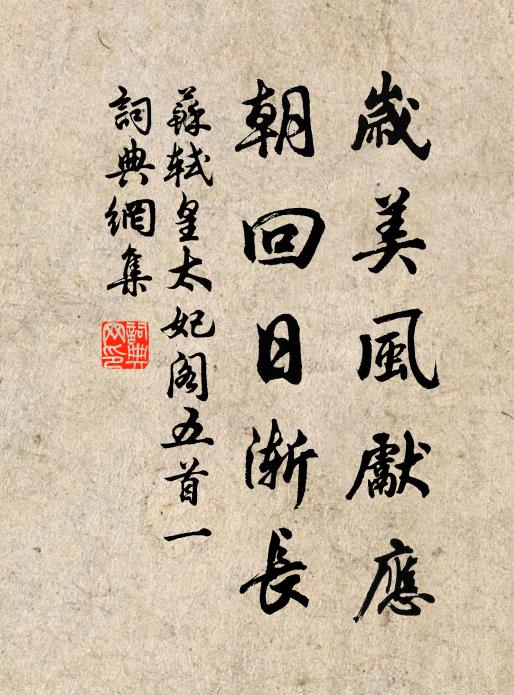 歲美風獻應
朝回日漸長
蘇軾皇太妃閣五首一
詞典網集
詞典网印